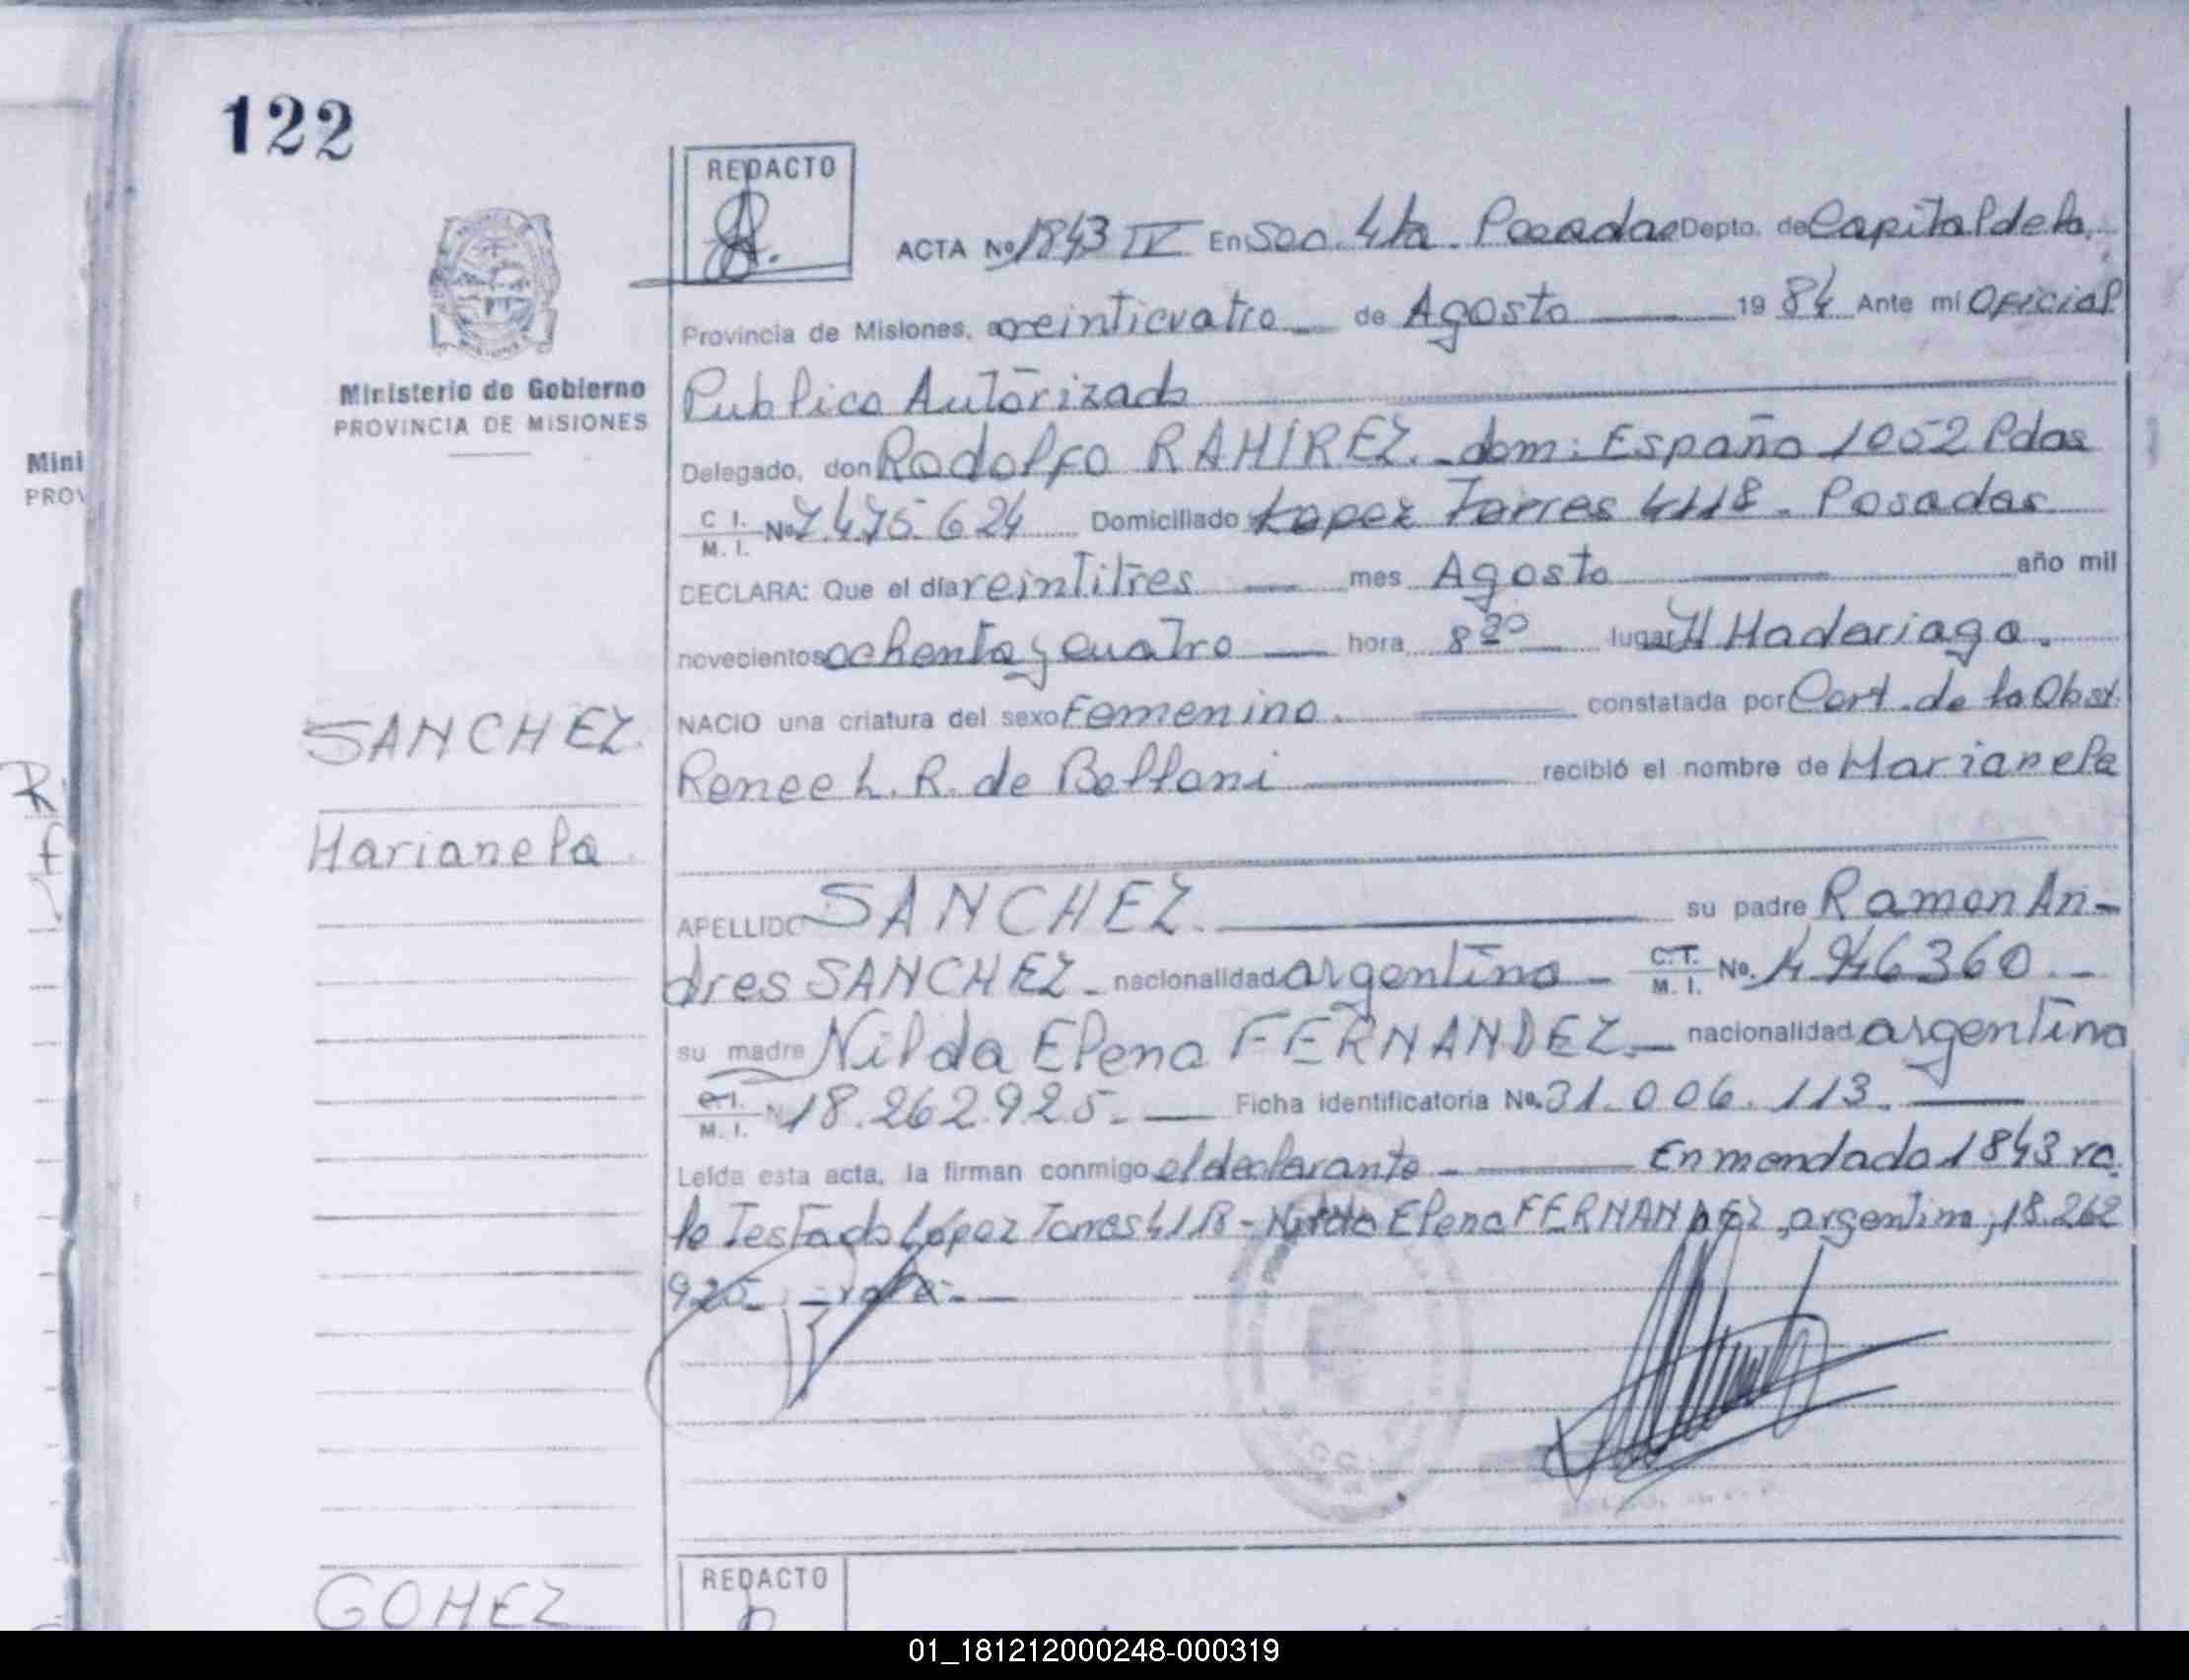 122
REDACTO
ACTA Nº 1843 IV En Sec. 4ta. Posadas Depto. de Capital de la
Provincia de Misiones, a veinticuatro de Agosto 19 84 Ante mí Oficial
Ministerio de Gobierno
PROVINCIA DE MISIONES
Publico Autorizado
Delegado, don Rodolfo RAMIREZ. dom: España 1052 Pdas
C I. M. I. Nº 7.475.624 Domiciliado Lopez Torres 4118 - Posadas
Mini
PROV
DECLARA: Que el día veintitres mes Agosto año mil
novecientos ochenta y cuatro hora 8 30 lugar H Madariaga.
NACIO una criatura del sexo Femenino. constatada por Cert. de la Obst.
SANCHEZ.
Renee L. R. de Belloni recibió el nombre de Marianela
Marianela
APELLIDO SANCHEZ. su padre Ramon An-
dres SANCHEZ - nacionalidad argentino - C.I. M. I. No. 946360. -
su madre Nilda Elena FERNANDEZ.- nacionalidad argentina
C.I. M. I. N 18.262.925. - Ficha identificatoria No. 31.006.113.
Leída esta acta, la firman conmigo el declarante - Enmendado 1843 va
le Testado López Torres 4118 - Nilda Elena FERNANDEZ, argentina, 18.262
925 - vale. -
REDACTO
GOMEZ
01_181212000248-000319